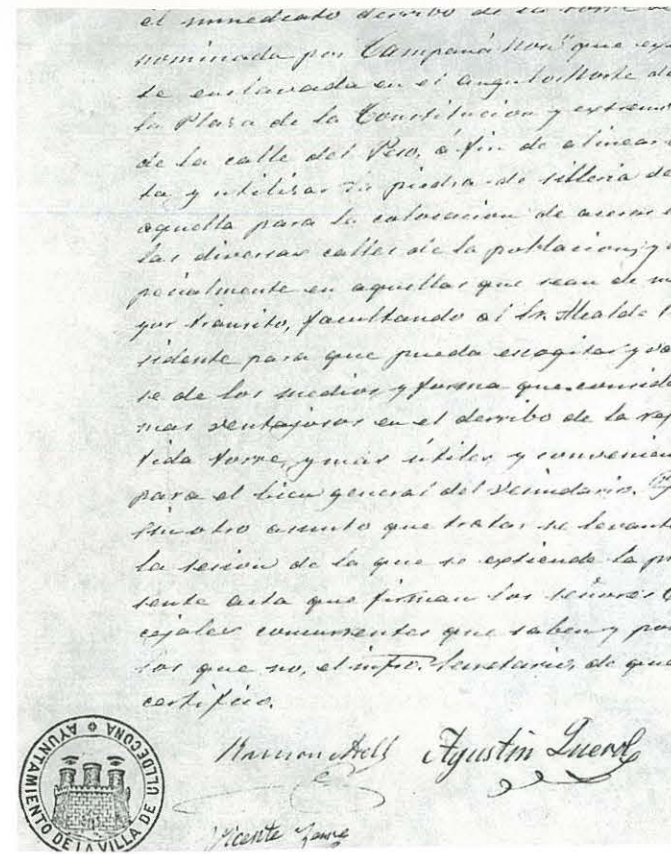 el inmediato derribo de la torre
nominada por "Campaná Nou" que ex
te enclavada en el angulo Norte de
la Plaza de la Constitucion y extremo
de la calle del Peso, á fin de alinear
ta y utilizar la piedra de silleria de
aquella para la colocacion de aceras
las diversas calles de la poblacion, y
pecialmente en aquellas que sean de m
yor transito, facultando al Sr. Alcalde
sidente para que pueda escogitar y va
se de los medios y forma que consid
mas ventajosos en el derribo de la re
rida torre, y mas útiles y convenien
para el bien general del vecindario.
sin otro asunto que tratar se levant
la sesion de la que se extiende la pr
sente acta que firman los señores
cejales concurrentes que saben y por
los que no, el infro. Secretario, de que
certifico.
Ramon Agustin Querol
Vicente
AYUNTAMIENTO DE LA VILLA DE ULLDECONA